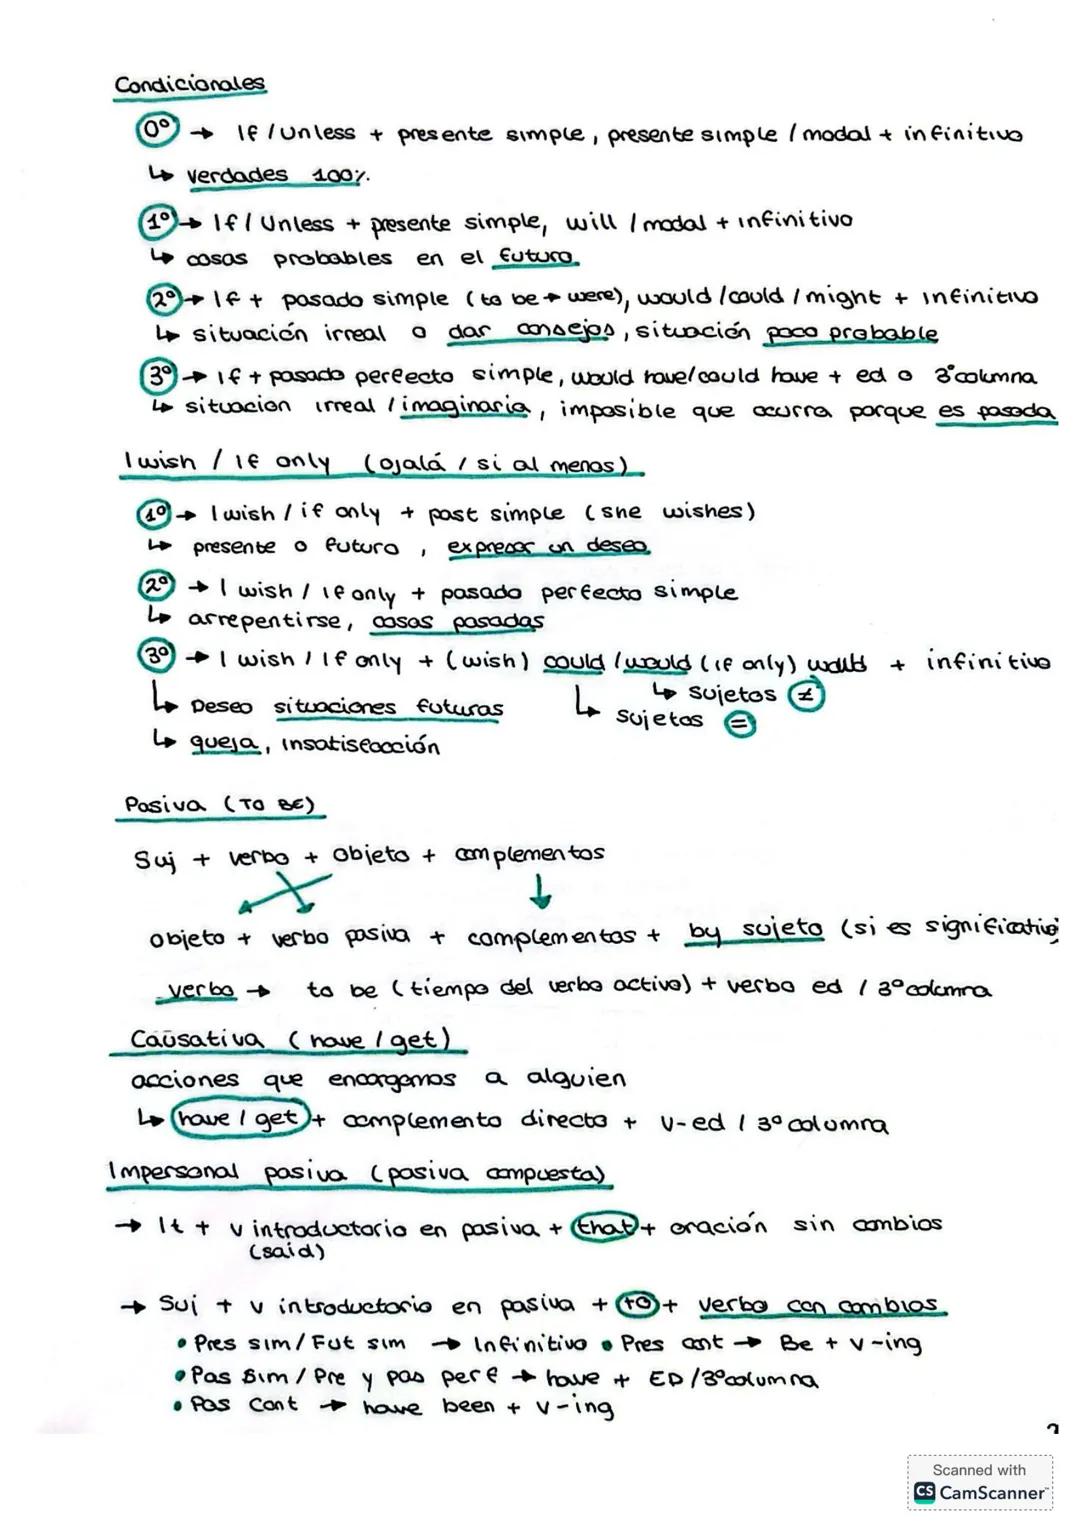 Condicionales
0º → If / Unless + presente simple, presente simple / modal + infinitivo
↳ verdades 100%.
1º → If / Unless + presente simple, will / modal + infinitivo
↳ cosas probables en el futuro.
2º → If + pasado simple (to be → were), would / could / might + infinitivo
↳ situación irreal o dar consejos, situación poco probable
3º → If + pasado perfecto simple, would have / could have + ed o 3ºcolumna
↳ situacion irreal / imaginaria, imposible que ocurra porque es pasada
I wish / If only (ojalá / si al menos)
1º → I wish / if only + past simple (she wishes)
↳ presente o futuro, expresar un deseo.
2º → I wish / If only + pasado perfecto simple
↳ arrepentirse, cosas pasadas
3º → I wish / If only + (wish) could / would (if only) would + infinitivo
↳ sujetos ≠
↳ Deseo situaciones futuras
↳ sujetos =
↳ queja, insatisfacción
Pasiva (TO BE)
Suj + verbo + objeto + complementos
objeto + verbo pasiva + complementos + by sujeto (si es significativo
verbo → to be (tiempo del verbo activo) + verbo ed / 3ºcolumna
Causativa (have / get)
acciones que encargamos a alguien
↳ have / get + complemento directo + V-ed / 3º columna
Impersonal pasiva (pasiva compuesta)
→ It + v introductorio en pasiva + that + oración sin cambios
(said)
→ Suj + v introductorio en pasiva + to + verbo con cambios.
• Pres sim / Fut sim → Infinitivo • Pres cont → Be + v-ing
• Pas Sim / Pre y pas perf → have + ED / 3ºcolumna
• Pas Cont → have been + v-ing
Scanned with
CS CamScanner™